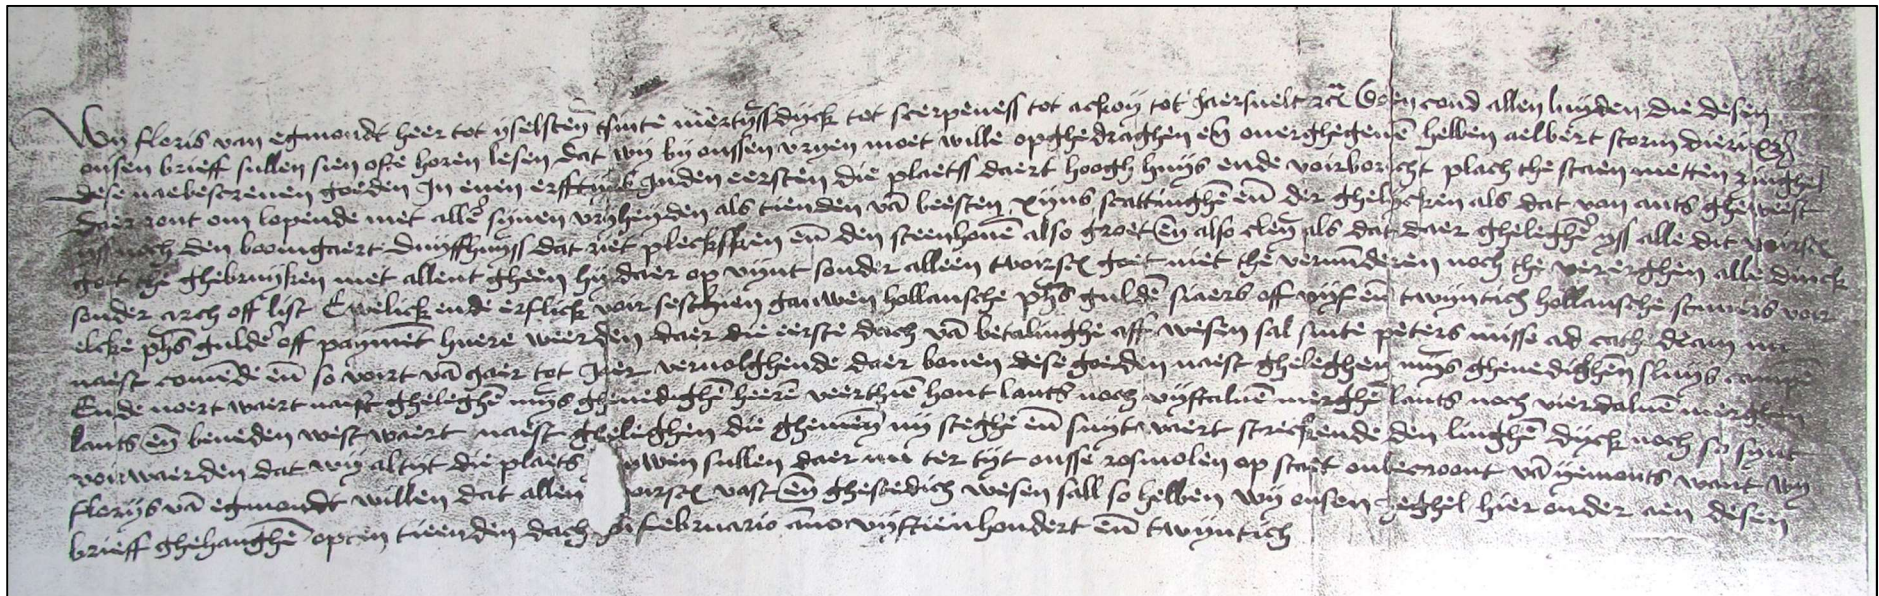 Wij floris van egmondt heer tot yselsteyn tsinte mertyssdyck tot scerpeness tot ackoy tot Jaersvelt doen cond allen luyden die desen
onsen brieff sullen sien ofte horen lesen dat wij bij onssen vryen moet wille opghedraghen eñ overghegevē hebben aelbert storm
dese naebescreven goeden In enen erfftyns Inden eersten die plaetss daert hoogh huys ende voirborcht plach the staen metten
daer ront om lopende met alle synen vryheyden als tienden vā beesten xijns scattinghē eñ der ghelycken als dat van ants gheweest
yss noch den boomgaert duyffhuyss dat riet pleckskien eñ den steenhovē also groet eñ also cleyn als dat daer gheleghē yss alle dit
goet the ghebruycken met allent gheen daer op vynt sonder alleen tvoirs goet niet the vermīderen noch the verergheren alle dinck
sonder arch off list Ewelick ende erflick voir sesthien gauwen hollansche phs guldē siaers off vijf eñ twyntich hollansche stuvers voir
elcke phs guldē off paymēt huere weerden daer die eerste dach vā betalinghe aff wesen sal sinte peters misse ad cathedram nu
naest comēde eñ so voirt vā Jaer tot Jaer vervolghende daer boven dese goeden naest gheleghen myns ghenedighen sluys
Ende noert waert naest gheleghē myns ghenedighē heerē veerthiē hont lants noch vijftalvē merghē lants noch vierdalvē merghen
lants eñ beneden west waert naest gheleghen die ghemeyn steghe eñ suyt waert streckende den linghē dyck noch so synt
voirwaerden dat wij altyt die plaets sullen daer nu ter tyt onsse rosmolen op staet onbecroont vā yemonts want wij
florys vā egmondt willen dat allen vast eñ ghestedich wesen sall so hebben wij onsen zeghel hier onder aen desen
brieff ghehanghē opten tienden dach februario āno vijftienhondert eñ twyntich